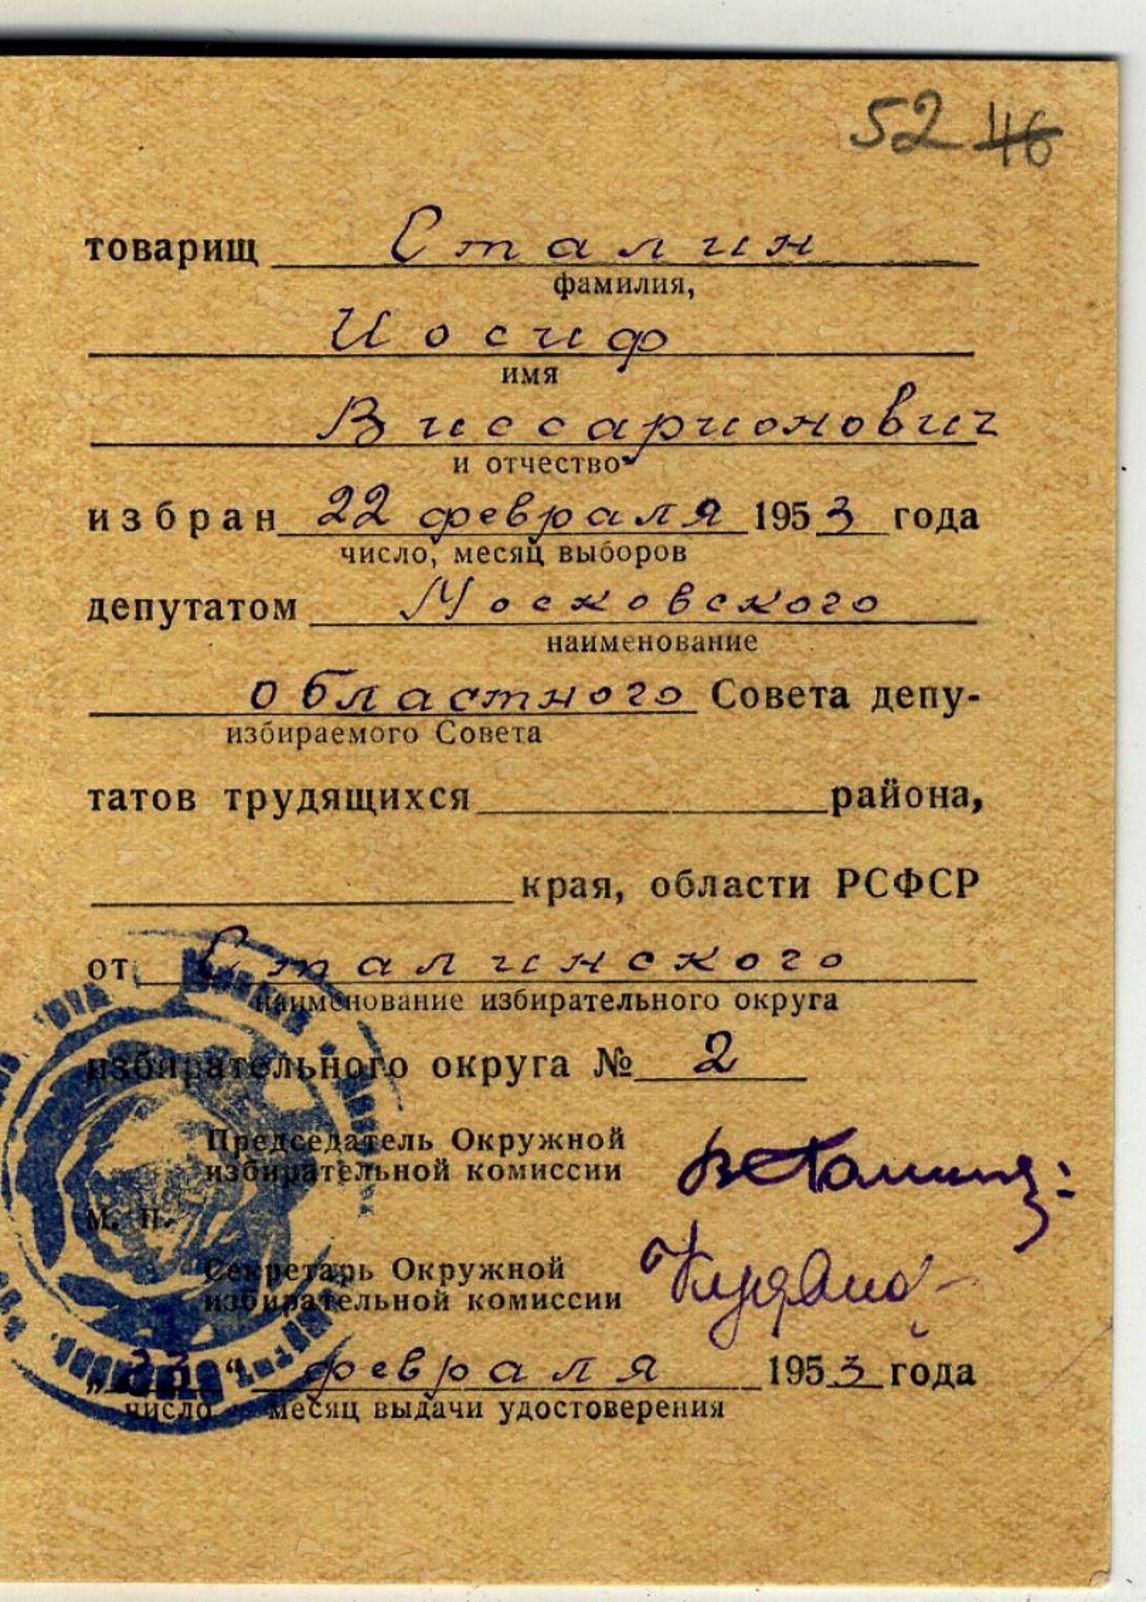 52 46
товарищ Сталин
фамилия,
Иосиф
имя
Виссарионович
и отчество
избран 22 февраля 1953 года
число, месяц выборов
депутатом Московского
наименование
областного Совета депу-
избираемого Совета
татов трудящихся района,
края, области РСФСР
от Сталинского
наименование избирательного округа
избирательного округа № 2
Председатель Окружной
избирательной комиссии
М. П.
Секретарь Окружной
избирательной комиссии
„23“ февраля 1953 года
число месяц выдачи удостоверения